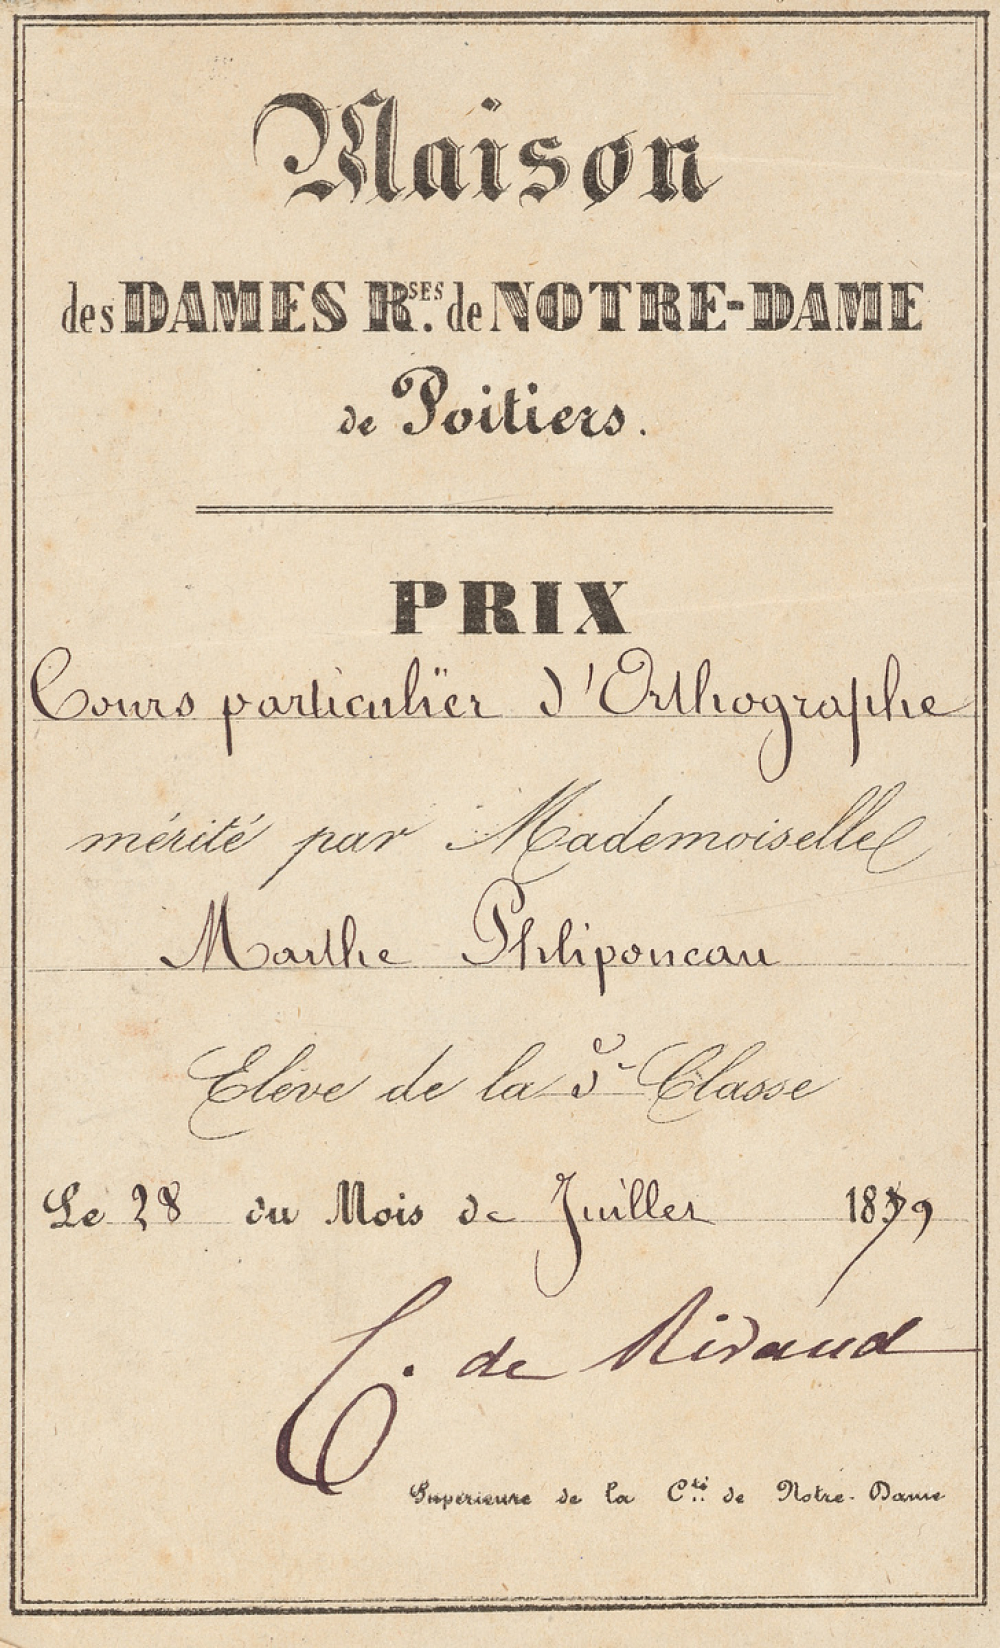 Maison
des DAMES R.SES de NOTRE-DAME
de Poitiers.
PRIX
Cours particulïer d'Orthographe
mérité par Mademoiselle
Marthe Phliponeau
Elève de la 5e Classe
Le 28 du Mois de Juillet 1879
C. de Rivaud
Supérieure de la C.té de Notre-Dame